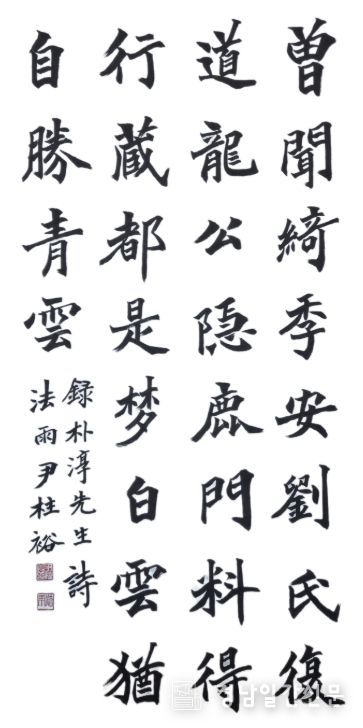 曾聞綺季安劉氏復
道龍公隐鹿門料得
行蔵都是梦白雲猶
自勝青雲
録朴淳先生詩
法雨尹柱裕
영남일간신문